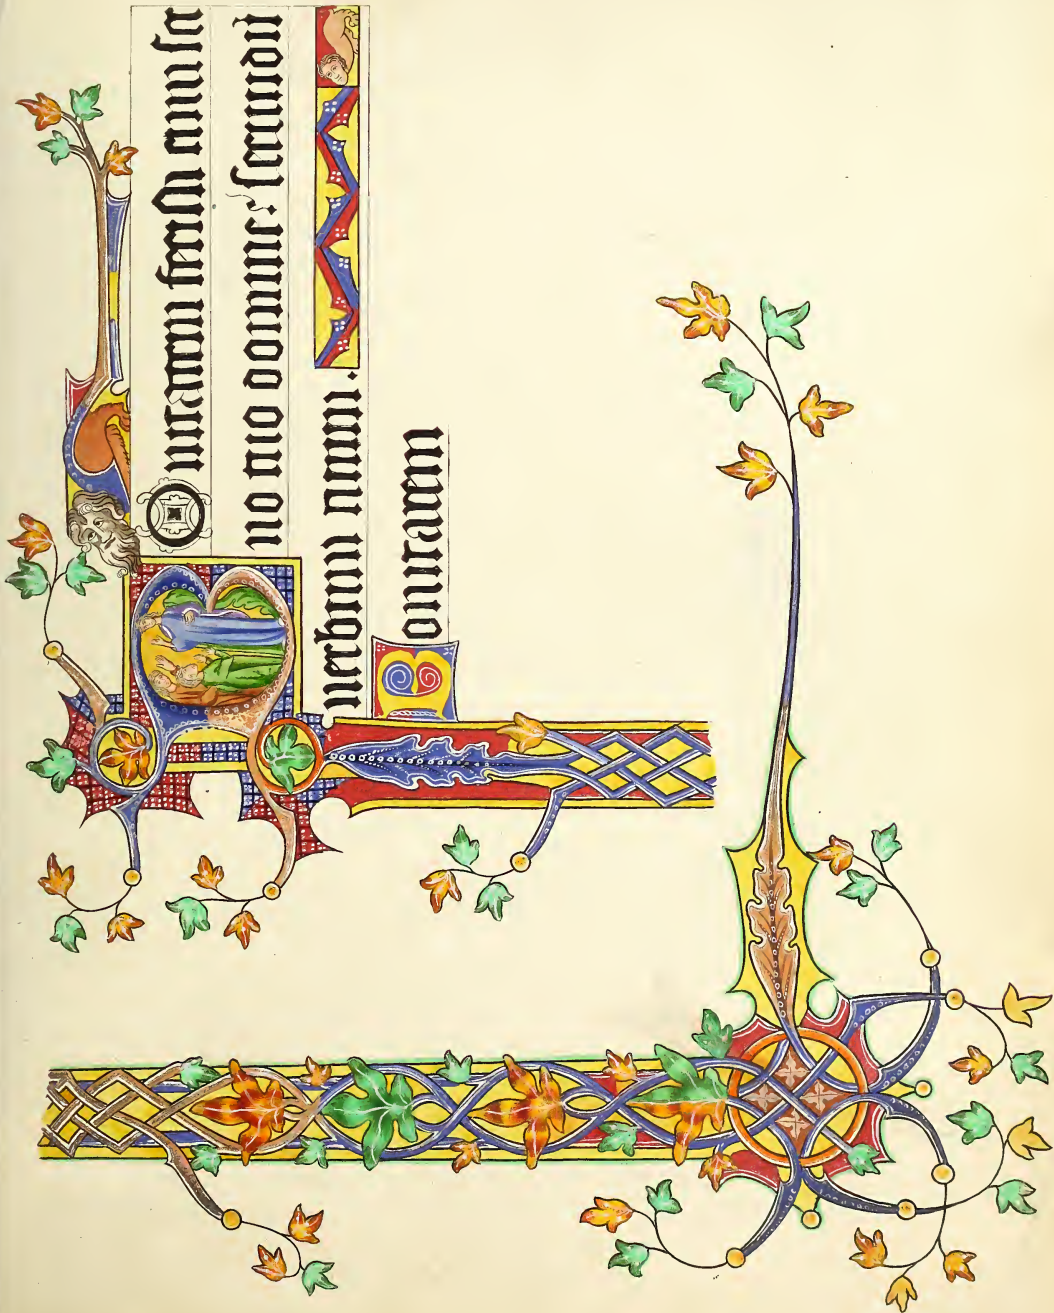 Bonitatem fecisti cum ser
uo tuo domine: secundum
uerbum tuum.
Bonitatem